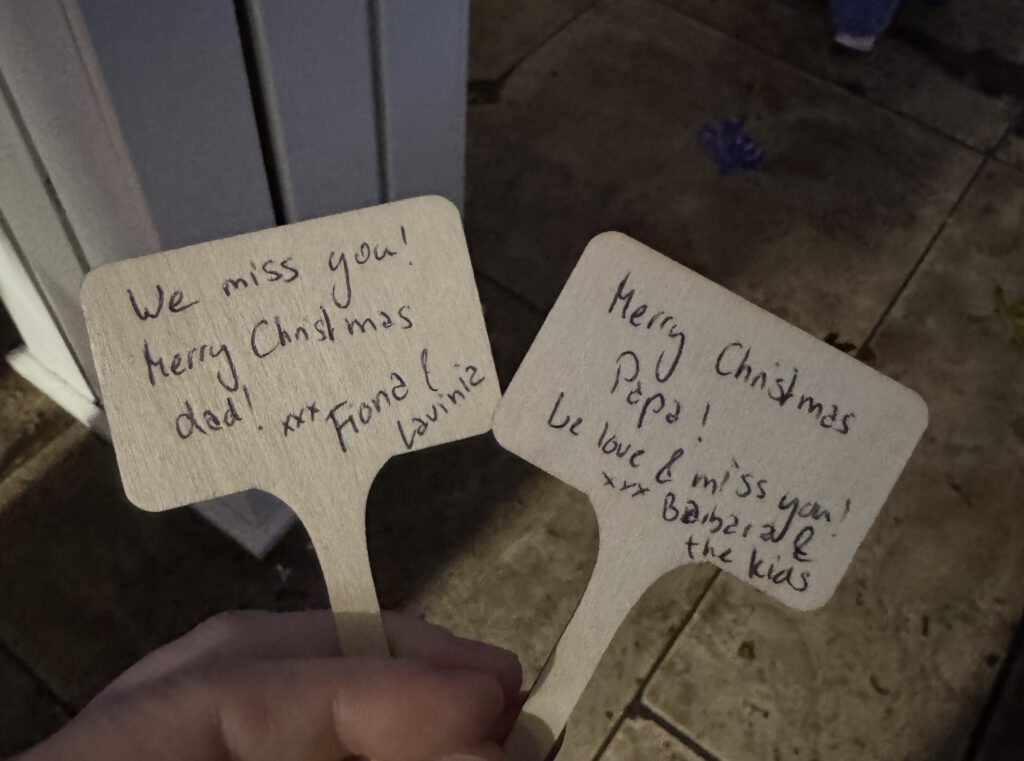 We miss you!
Merry Christmas
dad! xxx Fiona &
Lavinia
Merry Christmas
Papa!
We love & miss you!
xxx Barbara &
the kids